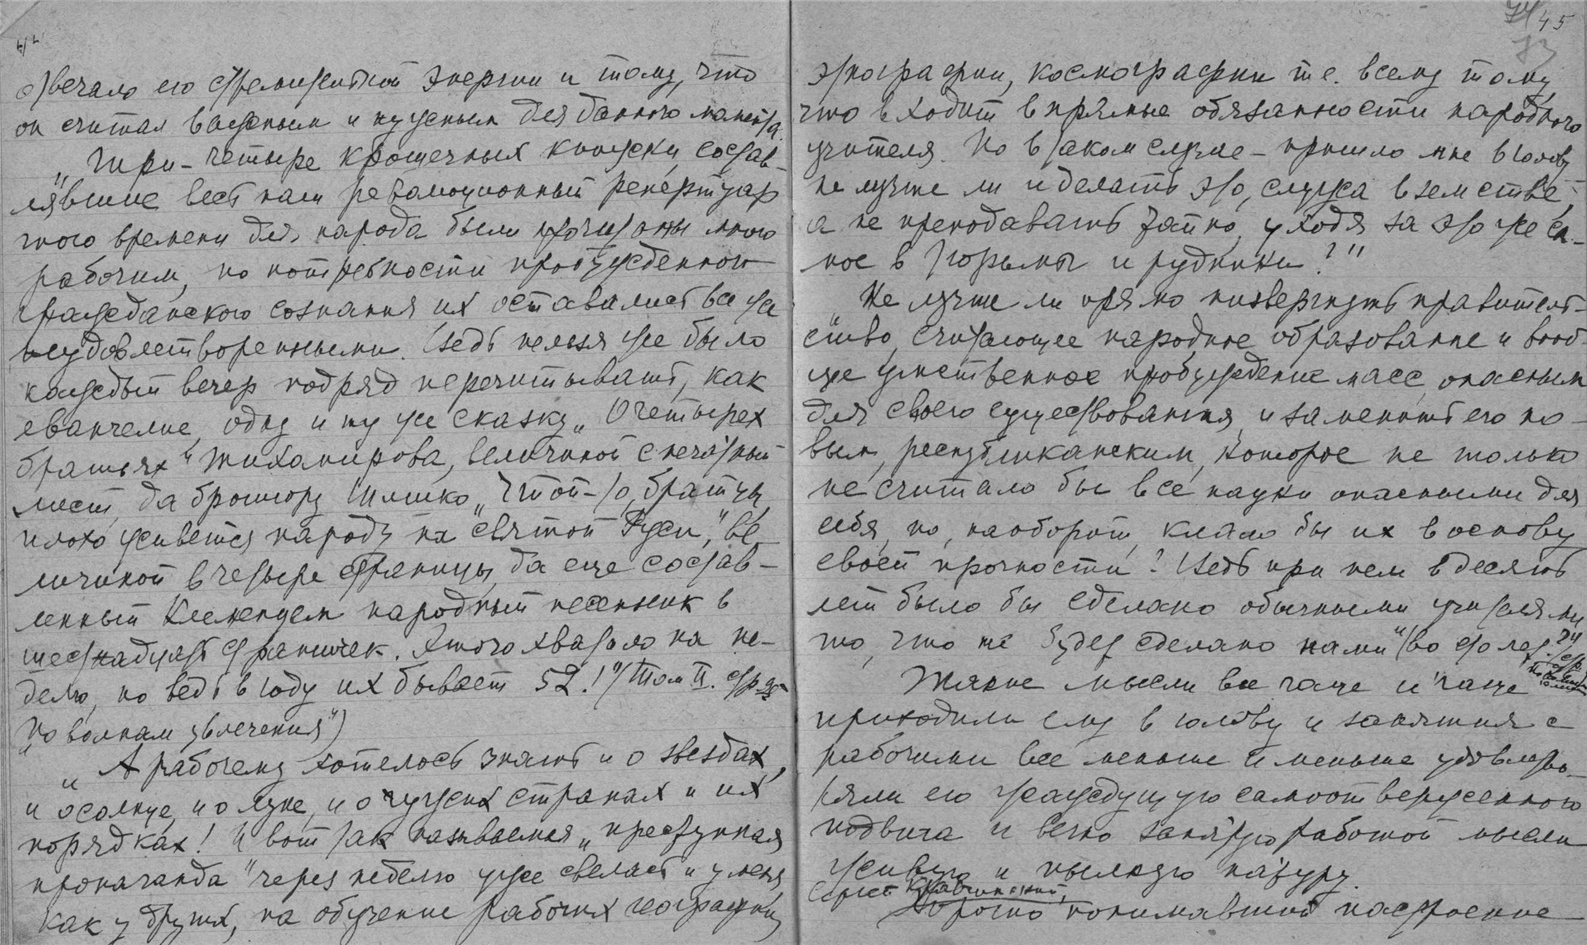 44
отвечало его стремительной энергии и тому, что
он считал важным и нужным для данного момента.
„Три-четыре крошечных книжки, состав-
лявшие весь наш революционный репертуар
того времени для народа были прочитаны много
рабочим, но потребности пробужденного
гражданского сознания их оставались все же
неудовлетворенными. Ведь нельзя же было
каждый вечер подряд перечитывать, как
евангелие, одну и ту же сказку „О четырех
братьях" Тихомирова, величиной с печатный
лист, да брошюру Шишко „Чтой-то, братцы,
плохо живется народу на святой Руси", ве-
личиной в четыре страницы, да еще состав-
ленный Клеменцем народный песенник в
шестнадцать страничек. Этого хватало на не-
делю, но ведь в году их бывает 52!" (Том II. стр.
„По волнам увлечения")
„А рабочему хотелось знать и о звездах,
и о солнце, и о луне, и о чужих странах и их
порядках! И вот так называемая „преступная
пропаганда" через неделю уже свелась и у меня,
как у других, на обучение рабочих географии,
45
этнографии, космографии т.е. всему тому,
что входит в прямые обязанности народного
учителя. Но в таком случае – пришло мне в голову –
не лучше ли и делать это, служа в земстве,
а не преподавать тайно, уходя за это же са-
мое в тюрьмы и рудники?"
„Не лучше ли прямо низвергнуть правитель-
ство, считающее народное образование и вооб-
ще умственное пробуждение масс, опасным
для своего существования, и заменить его но-
вым, республиканским, которое не только
не считало бы все науки опасными для
себя, но, наоборот, клало бы их в основу
своей прочности? Ведь при нем в десять
лет было бы сделано обычными учителями
то, что не будет сделано нами" (во сто лет."
Такие мысли все чаще и чаще
приходили ему в голову и занятия с
рабочими все меньше и меньше удовлетво-
ряли его жаждущую самоотверженного
подвига и вечно занятую работой мысли
живую и пылкую натуру.
Сергей Кравчинский,
Хорошо понимавший настроение